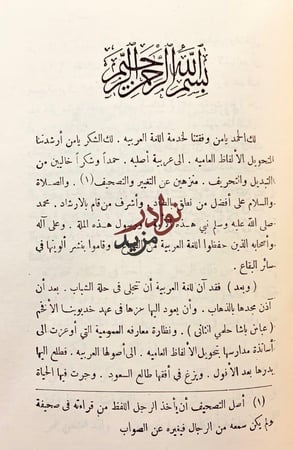 بسم الله الرحمن الرحيم
لك الحمد يامن وفقتنا لخدمة اللغة العربيه . لك الشكر يامن أرشدتنا
لتحويل الألفاظ العاميه . الى عربية أصليه . حمداً وشكراً خاليين من
التبديل والتحريف . منزهين عن التغيير والتصحيف (١) . والصلاة
والسلام على أفضل من نطق وأشرف من قام بالارشاد . محمد
صلى الله عليه وسلم نبي هذه رسول هذه الملة . وعلى آله
وأصحابه الذين حفظوا اللغة العربية من وقاموا بنشر ألويتها في
سائر البقاع .
نوادر
مزيد
( وبعد ) فقد آن للغة العربية أن تتجلى في حلة الشباب . بعد أن
آذن مجدها بالذهاب . وأن يعود اليها عزها في عهد خديوينا الأفخم
( عباس باشا حلمي الثاني ) . ونظارة معارفه العمومية التي أوعزت الى
أساتذة مدارسها بتحويل الألفاظ العاميه . الى أصولها العربيه . فطلع اليها
بدرها بعد الأفول . وبزغ في أفقها طالع السعود . وجرت فيها الحياة
(١) أصل التصحيف أن يأخذ الرجل اللفظ من قراءته في صحيفة
ولم يكن سمعه من الرجال فيغيره عن الصواب